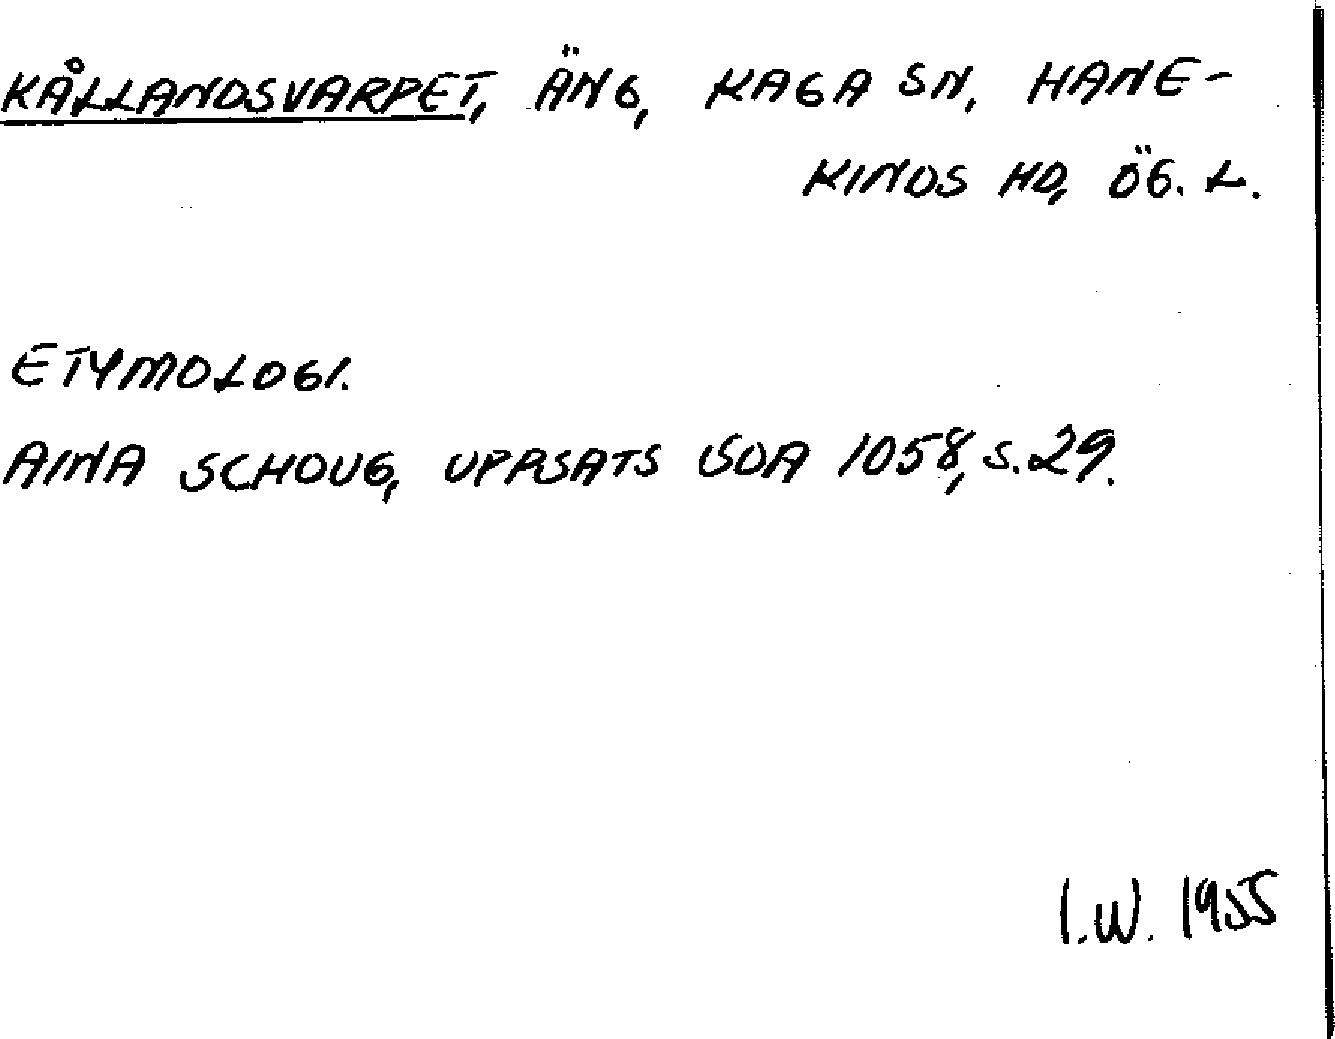 KÅLLANDSVARPET, ÄNG, KAGA SN, HANE-
KINDS HD, ÖG. L.
ETYMOLOGI.
AINA SCHOUG, UPPSATS ISOA 1058, S. 29.
I.W. 1955